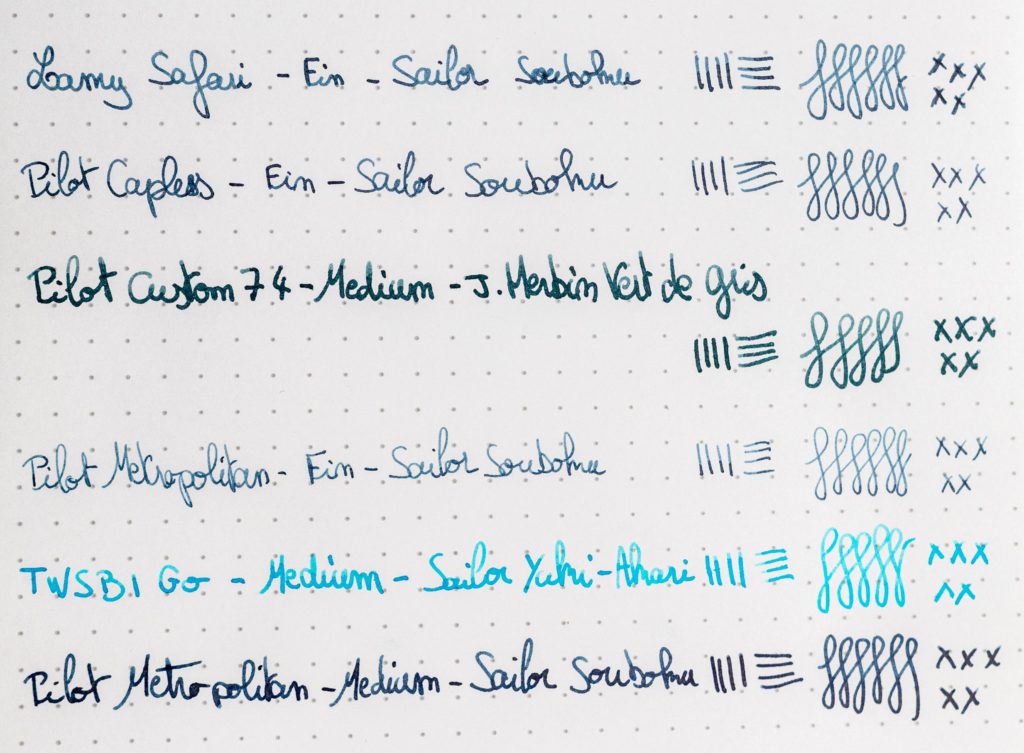 Lamy Safari - Fin - Sailor Souboku
Pilot Capless - Fin - Sailor Souboku
Pilot Custom 74 - Medium - J. Herbin Vert de gris
Pilot Metropolitan - Fin - Sailor Souboku
TWSBI Go - Medium - Sailor Yuki-Akari
Pilot Metropolitan - Medium - Sailor Souboku